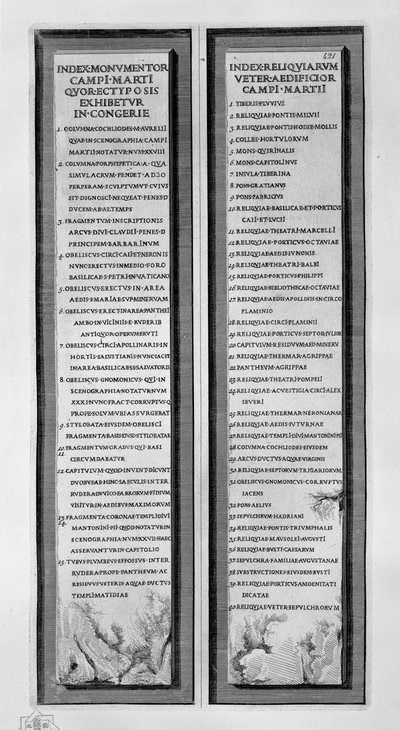 INDEX·MONVMENTOR
CAMPI·MARTI
QVOR·ECTYPOSIS
EXHIBETVR
IN·CONGERIE
1. COLVMNA·COCHLIODES·M·AVRELII
QVAE·IN·SCENOGRAPHIA·CAMPI
MARTI·NOTATVR·NVM·XXVIII
2. COLVMNA·PORPHYRETICA·A·QVA
SIMVLACRVM·PENDET·ADEO
PERPERAM·SCVLPTVM·VT·CVIVS
SIT·DIGNOSCI·NEQVEAT·PENES·D
DVCEM·AB·ALTEMPS
3. FRAGMENTVM·INSCRIPTIONIS
ARCVS·DIVI·CLAVDII·PENES·D
PRINCIPEM·BARBARINVM
4. OBELISCVS·CIRCI·CAII·ET·NERONIS
NVNC·ERECTVS·IN·MEDIO·FORO
BASILICAE·S·PETRI·IN·VATICANO
5. OBELISCVS·ERECTVS·IN·AREA
AEDIS·S·MARIAE·SVP·MINERVAM
6. OBELISCVS·ERECTVS·IN·AREA·PANTHEI
AMBO·IN·VICINIIS·E·RVDERIB
ANTIQVOR·OPERVM·ERVTI
7. OBELISCVS·CIRCI·APOLLINARIS·IN
HORTIS·SALVSTIANIS·NVNC·IACIT
IN·AREA·BASILICAE·SSSALVATORIS
8. OBELISCVS·GNOMONICVS·QVI·IN
SCENOGRAPHIA·NOTATVR·NVM
XXXI·NVNC·FRACT·CORRVPTVS·Q
PROPE·SOLVM·VBI·ASSVRGEBAT
9. STYLOBATA·EIVSDEM·OBELISCI
FRAGMENTA·BASIS·EIVSD·STYLOBATAE
10. FRAGMENTVM·GRADVS·QVI·BASI
11. CIRCVMDABATVR
12. CAPITVLVM·QVOD·INVENT·DICVNT
DVOBVS·AB·HINC·SAECVLIS·INTER
RVDERA·IN·VICO·FABRORVM·FIDIVM
VISITVR·IN·AEDIBVS·MAXIMORVM
13. FRAGMENTA·CORONAE·TEMPLI·DIVI
14. M·ANTONINI·PII·QVOD·NOTATVR·IN
SCENOGRAPHIA·NVM·XXVII·HAEC
ASSERVANTVR·IN·CAPITOLIO
15. TVBVS·PLVMBEVS·EFFOSSVS·INTER
RVDERA·PROPE·PANTHEVM·AC
RESIDVVS·VETERIS·AQVAE·DVCTVS
TEMPLI·MATIDIAE
421
INDEX·RELIQVIARVM
VETER·AEDIFICIOR
CAMPI·MARTII
1. TIBERIS·FLVVIVS
2. RELIQVIAE·PONTIS·MILVI
3. RELIQVIAE·PONTIS·HODIE·MOLLIS
4. COLLES·HORTVLORVM
5. MONS·QVIRINALIS
6. MONS·CAPITOLINVS
7. INSVLA·TIBERINA
8. PONS·GRATIANVS
9. PONS·FABRICIVS
10. RELIQVIAE·BASILICAE·ET·PORTICVS
CAII·ET·LVCII
11. RELIQVIAE·THEATRI·MARCELLI
12. RELIQVIAE·PORTICVS·OCTAVIAE
13. RELIQVIAE·AEDIS·IVNONIS
14. RELIQVIAE·THEATRI·BALBI
15. RELIQVIAE·PORTICVS·PHILIPPI
16. RELIQVIAE·BIBLIOTHECAE·OCTAVIAE
17. RELIQVIAE·AEDIS·APOLLINIS·IN·CIRCO
FLAMINIO
18. RELIQVIAE·CIRCI·FLAMINII
19. RELIQVIAE·PORTICVS·SEPTORVM
20. CAPITVLVM·RESIDVVM·AED·MINERV
21. RELIQVIAE·THERMAR·AGRIPPAE
22. PANTHEVM·AGRIPPAE
23. RELIQVIAE·THEATRI·POMPEII
24. RELIQVIAE·AC·VESTIGIA·CIRCI·ALEX
SEVERI
25. RELIQVIAE·THERMAR·NERONIANAR
26. RELIQVIAE·AEDIS·IVTVRNAE
27. RELIQVIAE·TEMPLI·DIVI·M·ANTONINI·PII
28. COLVMNA·COCHLIODES·EIVSDEM
29. ARCVS·DVCTVS·AQVAE·VIRGINIS
30. RELIQVIAE·SEPTORVM·TRIGARIORVM
31. OBELISCVS·GNOMONICVS·CORRVPTVS
IACENS
32. PONS·AELIVS
33. SEPVLCHRVM·HADRIANI
34. RELIQVIAE·PONTIS·TRIVMPHALIS
35. RELIQVIAE·MAVSOLEI·AVGVSTI
36. RELIQVIAE·BVSTI·CAESARVM
37. SEPVLCHRA·FAMILIAE·AVGVSTANAE
38. SVBSTRVCTIONES·EIVSDEM·BVSTI
39. RELIQVIAE·PORTICVS·AMOENITATI
DICATAE
40. RELIQVIAE·VETER·SEPVLCHRORVM